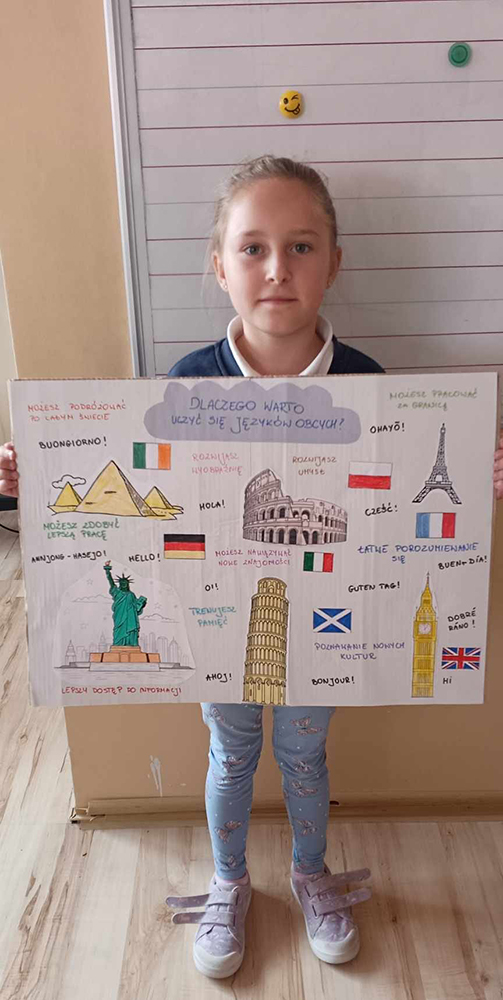 DLACZEGO WARTO
UCZYĆ SIĘ JĘZYKÓW OBCYCH?
MOŻESZ PODRÓŻOWAĆ
PO CAŁYM ŚWIECIE
MOŻESZ PRACOWAĆ
ZA GRANICĄ
BUONGIORNO!
OHAYŌ!
ROZWIJASZ
WYOBRAŹNIĘ
ROZWIJASZ
UMYSŁ
HOLA!
CZEŚĆ!
MOŻESZ ZDOBYĆ
LEPSZĄ PRACĘ
ANNJONG-HASEJO!
HELLO!
MOŻESZ NAWIĄZYWAĆ
NOWE ZNAJOMOŚCI
ŁATWE POROZUMIENIANIE
SIĘ
BUEN-DÍA!
GUTEN TAG!
TRENUJESZ
PAMIĘĆ
POZNAWANIE NOWYCH
KULTUR
DOBRÉ
RÁNO!
AHOJ!
BONJOUR!
HI
LEPSZY DOSTĘP DO INFORMACJI